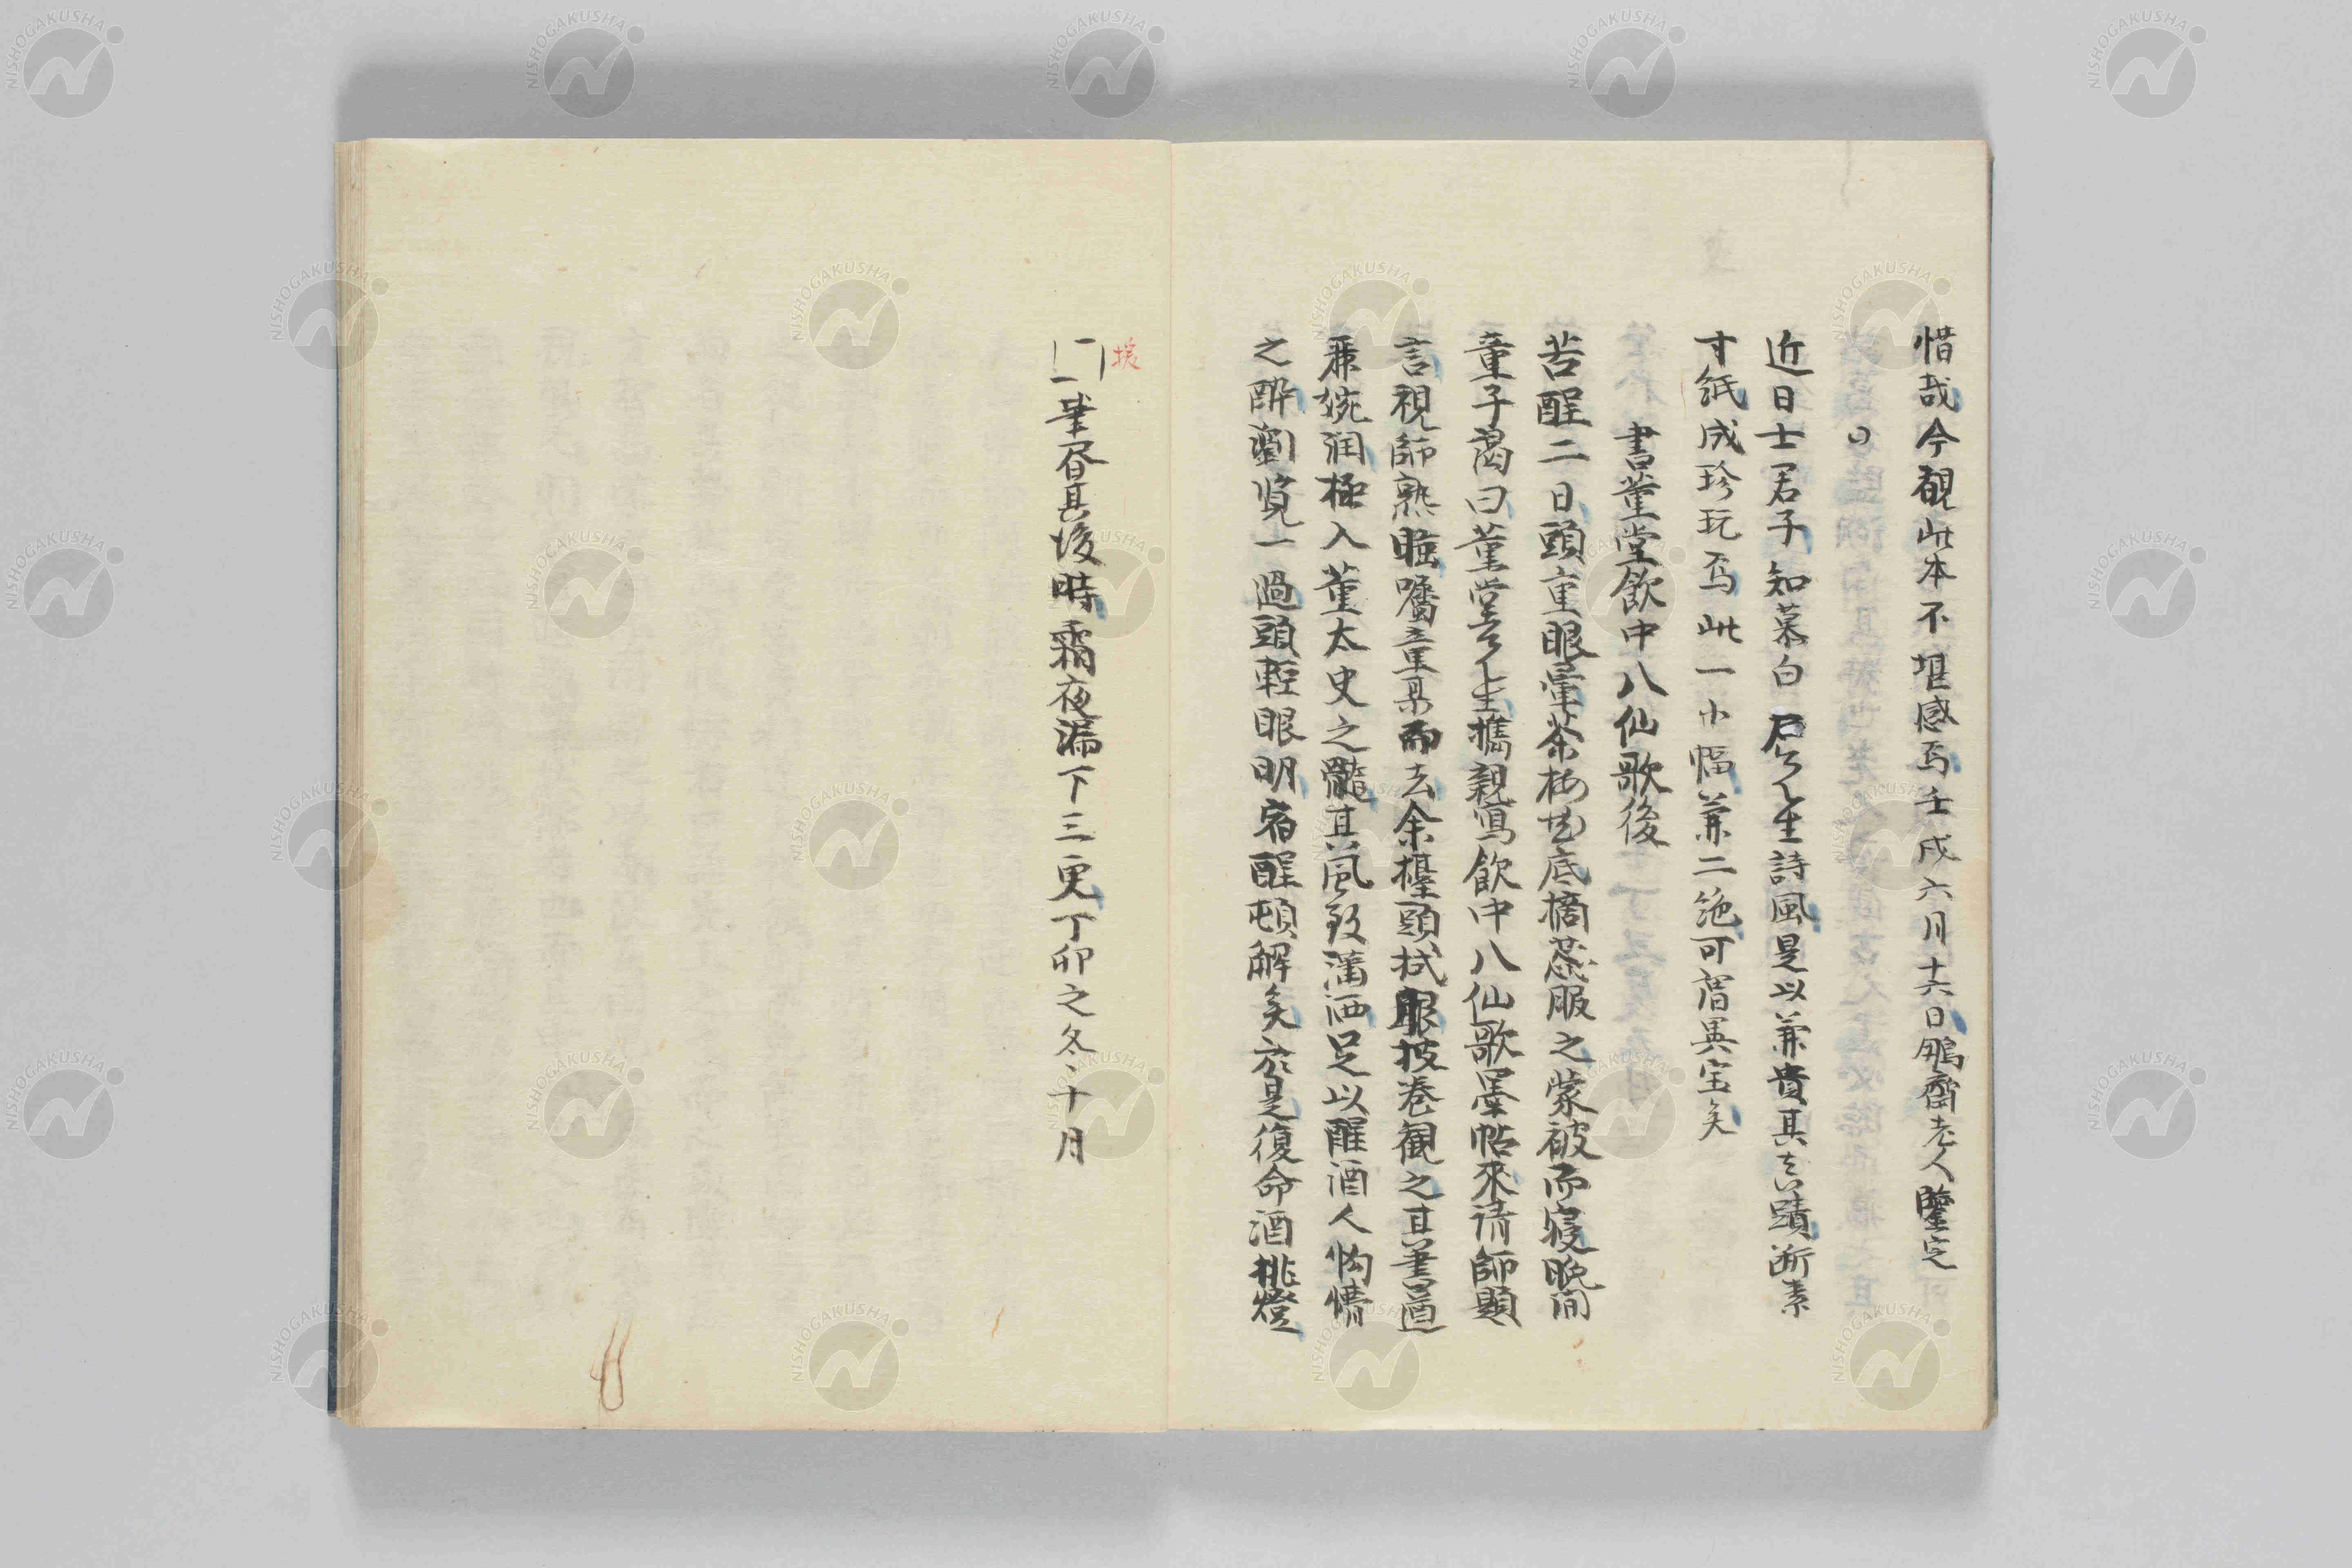 惜哉今覩此本不堪感焉壬戌六月十六日鵬齋老人鑒定
〇
近日士君子知慕白石先生詩風是以兼貴其真蹟断素
寸紙成珍玩焉此一小幅兼二絶可謂異宝矣
書董堂飲中八仙歌後
苦酲二日頭重眼暈茶梅花底摘蕊服之蒙被而寝晩間
童子謁曰董堂先生携親寫飲中八仙歌墨帖來请師題
言視師熟睡囑童某而去余擡頭拭眼披巻観之其書遒
麻婉润極入董太史之髓其風致瀟洒足以醒酒人惛懵
之酔劉覧一過頭輕眼明宿酲頓解矣於是復命酒挑燈
挨
一筆眉其後時霜夜漏下三更丁卯之冬十月
NISHOGAKUSHA